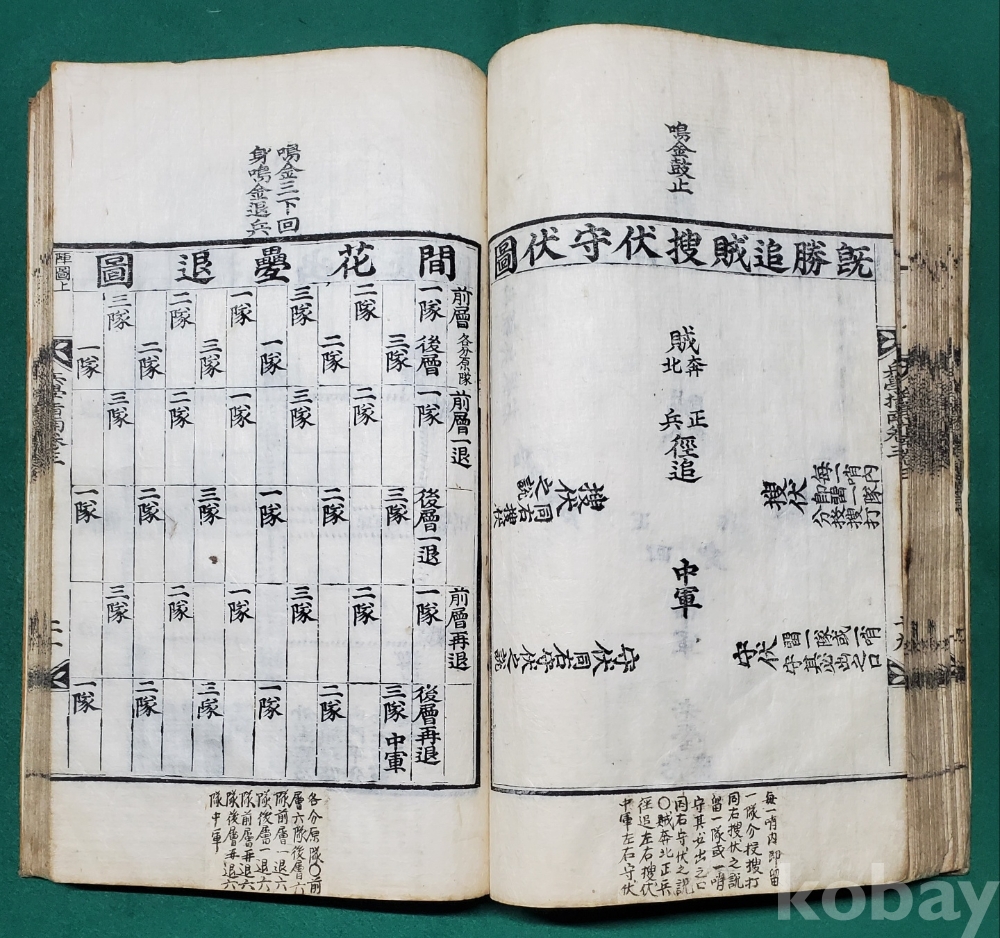 鳴金鼓止
旣勝追賊搜伏守伏圖
賊
奔北
正兵
徑追
搜伏
每一哨內
卽留一隊
分投搜打
搜伏同右搜伏之說
中軍
守伏
留一隊或一哨
守其必出之口
守伏同右守伏之說
每一哨內卽留
一隊分投搜打
同右搜伏之說
留一隊或一哨
守其必出之口
同右守伏之說
〇賊奔北正兵
徑追左右搜伏
中軍左右守伏
兵學指南卷三
鳴金三下回
身鳴金退兵
間花疊退圖
前層 各分原隊
一隊 二隊 三隊 一隊 二隊 三隊
後層
三隊 二隊 一隊 三隊 二隊 一隊
前層一退
一隊 二隊 三隊 一隊 二隊 三隊
後層一退
三隊 二隊 一隊 三隊 二隊 一隊
前層再退
一隊 二隊 三隊 一隊 二隊 三隊
後層再退
三隊 二隊 一隊 三隊 二隊 一隊
中軍
各分原隊〇前
層六隊後層六
隊前層一退六
隊後層一退六
隊前層再退六
隊後層再退六
隊中軍
陣圖上
兵學指南卷三
kobay